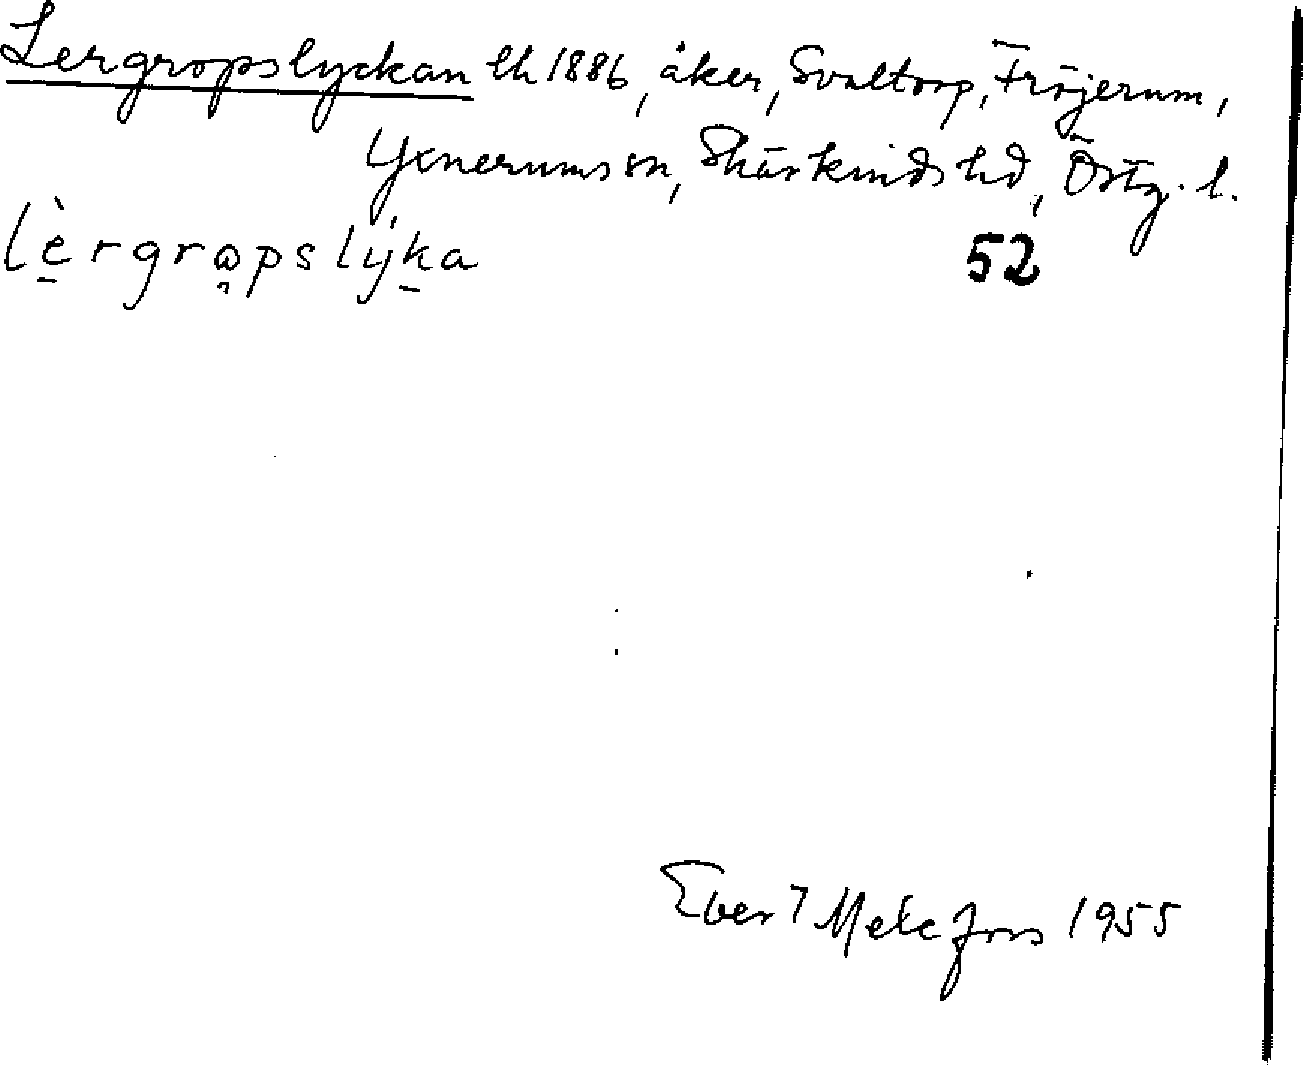 Lergropslyckan lh 1886, åker, Svaltorp, Fröjerum,
Yxnerums sn, Skärkinds hd, Östg. l.
lè̠rgrɷpslýk̠a 52
Evert Melefors 1955